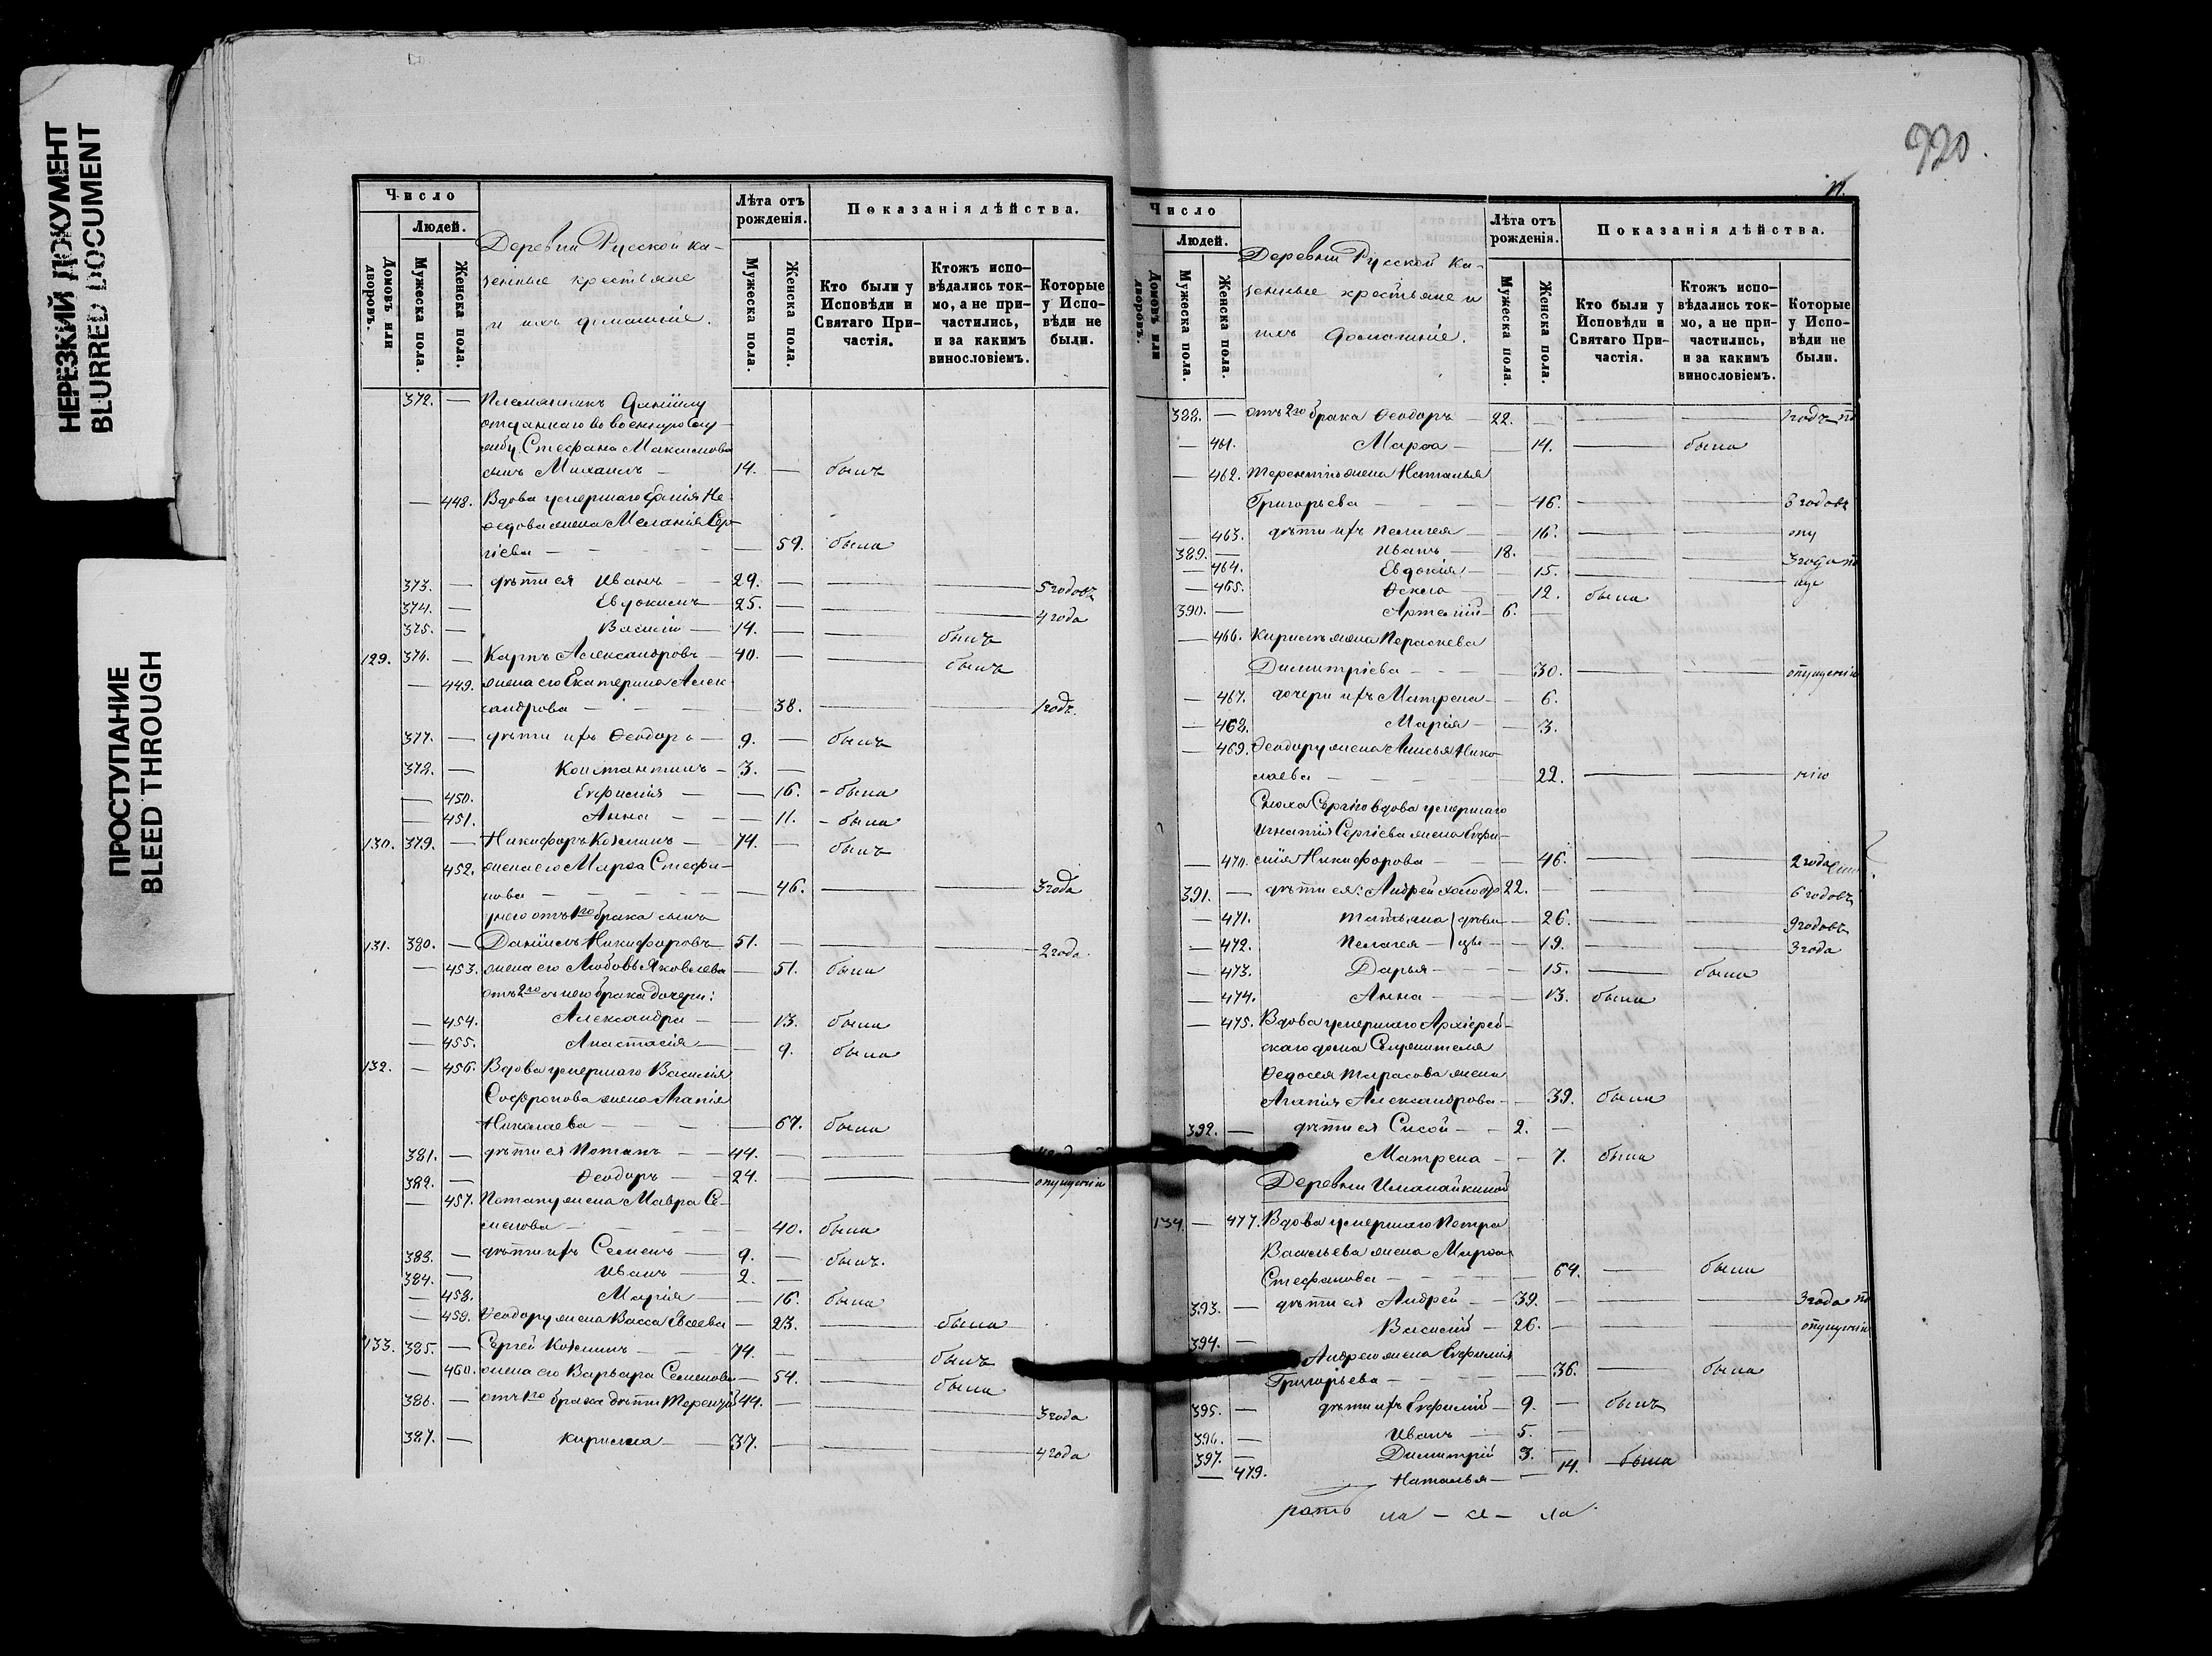 НЕРЕЗКИЙ ДОКУМЕНТ
BLURRED DOCUMENT
ПРОСТУПАНИЕ
BLEED THROUGH
Число
Людей.
Домовъ или дворовъ.
Мужеска пола.
Женска пола.
Деревни Русской ка-
зенные крестьяне
и ихъ домашніе.
Лѣта отъ рожденія.
Мужеска пола.
Женска пола.
Показанія дѣйства.
Кто были у Исповѣди и Святаго Причастія.
Ктожъ исповѣдались токмо, а не причастились, и за какимъ винословіемъ.
Которые у Исповѣди не были.
372. — Племянникъ Даніилу
отданнаго во военную слу
жбу Стефана Максимова
сынъ Михаилъ — 14. — былъ
— 448. Вдова умершаго
жена Меланія Сер-
гіева — 59. была
373. — дѣти ея Иванъ — 29. — 5 годовъ
374. — Евдокимъ — 25. — 4 года
375. — Василій — 14. — былъ
129. 376. — Карпъ Александровъ — 40. — былъ
— 449. жена его Екатерина Алек
сандрова — 38. — 1 годъ.
377. — дѣти ихъ Ѳеодоръ — 9. — былъ
378. — Константинъ — 3. —
— 450. Евфимія — 16. — была
— 451. Анна — 11. — была
130. 379. — Никифоръ Козминъ — 74. — былъ
452. жена его Марѳа Стефа-
нова — 46. — 3 года
у него отъ 1го брака сынъ
131. 380. — Даніилъ Никифоровъ — 51. — 2 года
— 453. жена его Любовь Яковлева — 51. была
отъ 2го съ нею брака дочери:
— 454. Александра — 13. была
— 455. Анастасія — 9. была
132. — 456. Вдова умершаго Василія
Софронова жена Агапія
Николаева — 67. была
381. — дѣти ея Потапъ — 44. —
382. — Ѳеодоръ — 24. — опущенію
— 457. Потапу жена Мавра Се-
менова — 40. была
383. — дѣти ихъ Семенъ — 9. — былъ.
384. — Иванъ — 2. —
— 458. Марія — 16. была
— 459. Ѳеодору жена Васса — 23. — была
133. 385. — Сергей Козминъ — 74. — былъ
— 460. жена его Варвара Семенова — 54. — была
386. — отъ 1го брака дѣти Терентій 44. — 3 года
387. — Кирилла — 37. — 4 года
920.
Число
Людей.
Домовъ или дворовъ.
Мужеска пола.
Женска пола.
Деревни Русской ка-
зенные крестьяне и
ихъ домашніе.
Лѣта отъ рожденія.
Мужеска пола.
Женска пола.
Показанія дѣйства.
Кто были у Исповѣди и Святаго Причастія.
Ктожъ исповѣдались токмо, а не причастились, и за какимъ винословіемъ.
Которые у Исповѣди не были.
388. — отъ 2го брака Ѳеодоръ — 22. — 1 годъ по
— 461. Марѳа — 14. — была
— 462. Терентію жена Наталья
Григорьева — 46. — 6 годовъ
— 463. дѣти ихъ Пелагея — 16. — опу
389. — Иванъ — 18. — 3 года по
— 464. Евдокія — 15. —
— 465. Ѳекла — 12. была
390. — Артемій — 6. —
— 466. Кирилѣ жена Параскева
Димитріева — 30. — опущенію
— 467. дочери ихъ Матрена — 6.
— 468. Марія — 3.
— 469. Ѳеодору жена Анисья Нико-
лаева — 22. — нію
Сноха Сергію вдова умершаго
Игнатія Сергіева жена Евфи-
— 470. мія Никифорова — 46. — 2 года
391. — дѣти ея: Андрей холос 22. — 6 годовъ
— 471. Татьяна } дѣви — 26. — 9 годовъ
— 472. Пелагея } цы — 19. — 3 года
— 473. Дарья — 15. — была
— 474. Анна — 13. была
— 475. Вдова умершаго Архіерей-
скаго дома Служителя
Ѳедосея Тарасова жена
Агапія Александрова — 39. была
392. — дѣти ея Сисой — 2. —
Матрена — 7. была
Деревни Исламайкиной
134. — 477. Вдова умершаго Петра
Васильева жена Марѳа
Стефанова — 64. — была
393. — дѣти ея Андрей — 39. — 3 года по
394. — Василій — 26. — опущенію
Андрею жена Евфимія
Григорьева — 36. — была
395. — дѣти ихъ Евфимій — 9. — былъ
396. — Иванъ — 5. —
397. — Димитрій 3. —
— 479. Наталья — 14. была